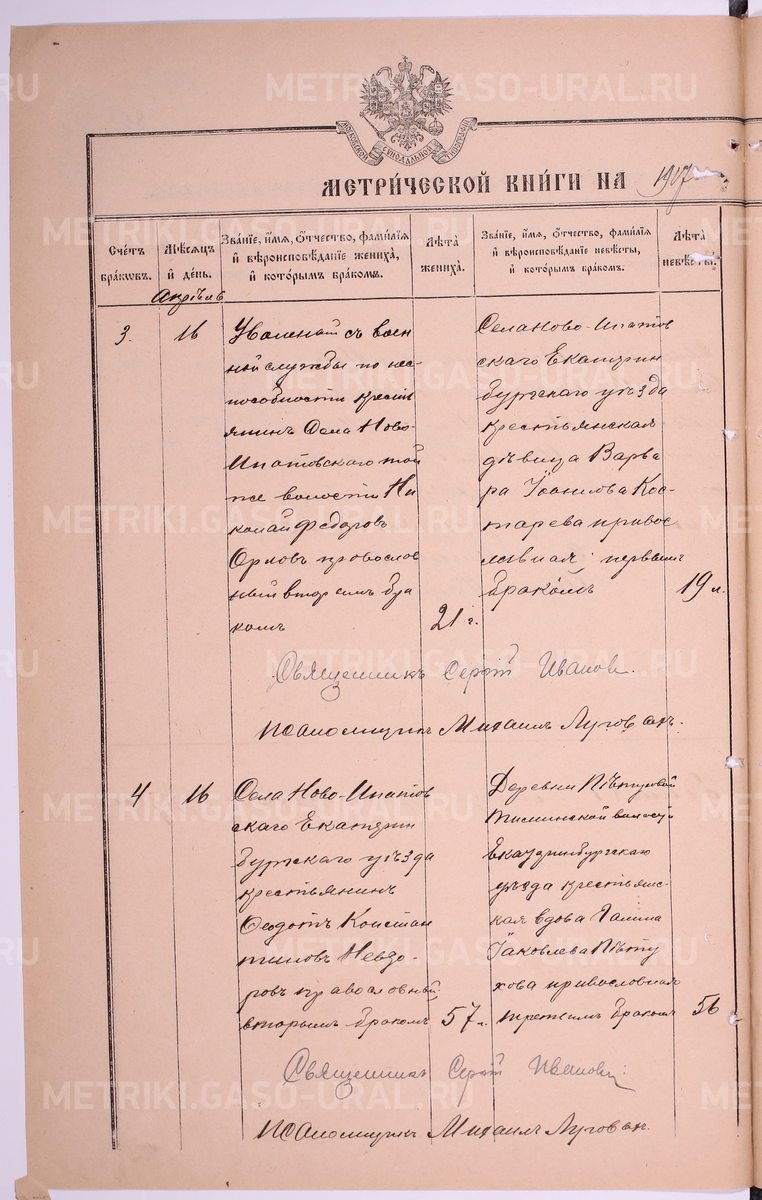 METRIKI.GASO-URAL.RU
МОСКОВСКОЙ СѴНОДАЛЬНОЙ ТИПОГРАФІИ
МЕТРИ́ЧЕСКОЙ КНИ́ГИ НА 1907
Сче́тъ бра́ковъ.
Мѣ́сяцъ и҆ де́нь.
Зва́нїе, и҆́мя, ѻ҆́тчество, фамилїя и҆ вѣроисповѣ́данїе жениха̀, и҆ кото́рымъ бра́комъ.
Лѣта̀ жениха̀.
Зва́нїе, и҆́мя, ѻ҆́тчество, фамилїя и҆ вѣроисповѣ́данїе невѣ́сты, и҆ кото́рымъ бра́комъ.
Лѣта̀ невѣ́сты.
Апрѣль
3.
16
Уволенный съ воен
ной службы по нес-
пособности кресть
янинъ Села Ново-
Ипатовскаго той
же волости Ни
колай Федоровъ
Орловъ православ
ный вторымъ бра
комъ
21 г.
Села Ново-Ипатов
скаго Екатерин
бургскаго уѣзда
крестьянская
дѣвица Варва
ра Іоанова Кос-
тарева правос
лавная первымъ
бракомъ
19 л.
Священникъ Сергій Ивановъ.
Псаломщикъ Михаилъ
4
16
Села Ново-Ипатов
скаго Екатерин
бургскаго уѣзда
крестьянинъ
Ѳеодотъ Констан
тиновъ
православный
вторымъ бракомъ
57 л.
Деревни
волости
Екатеринбургскаго
уѣзда крестьянс-
кая вдова Галина
Іаковлева Пѣту
хова православная
третьимъ бракомъ
56
Священникъ Сергій Ивановъ
Псаломщикъ Михаилъ